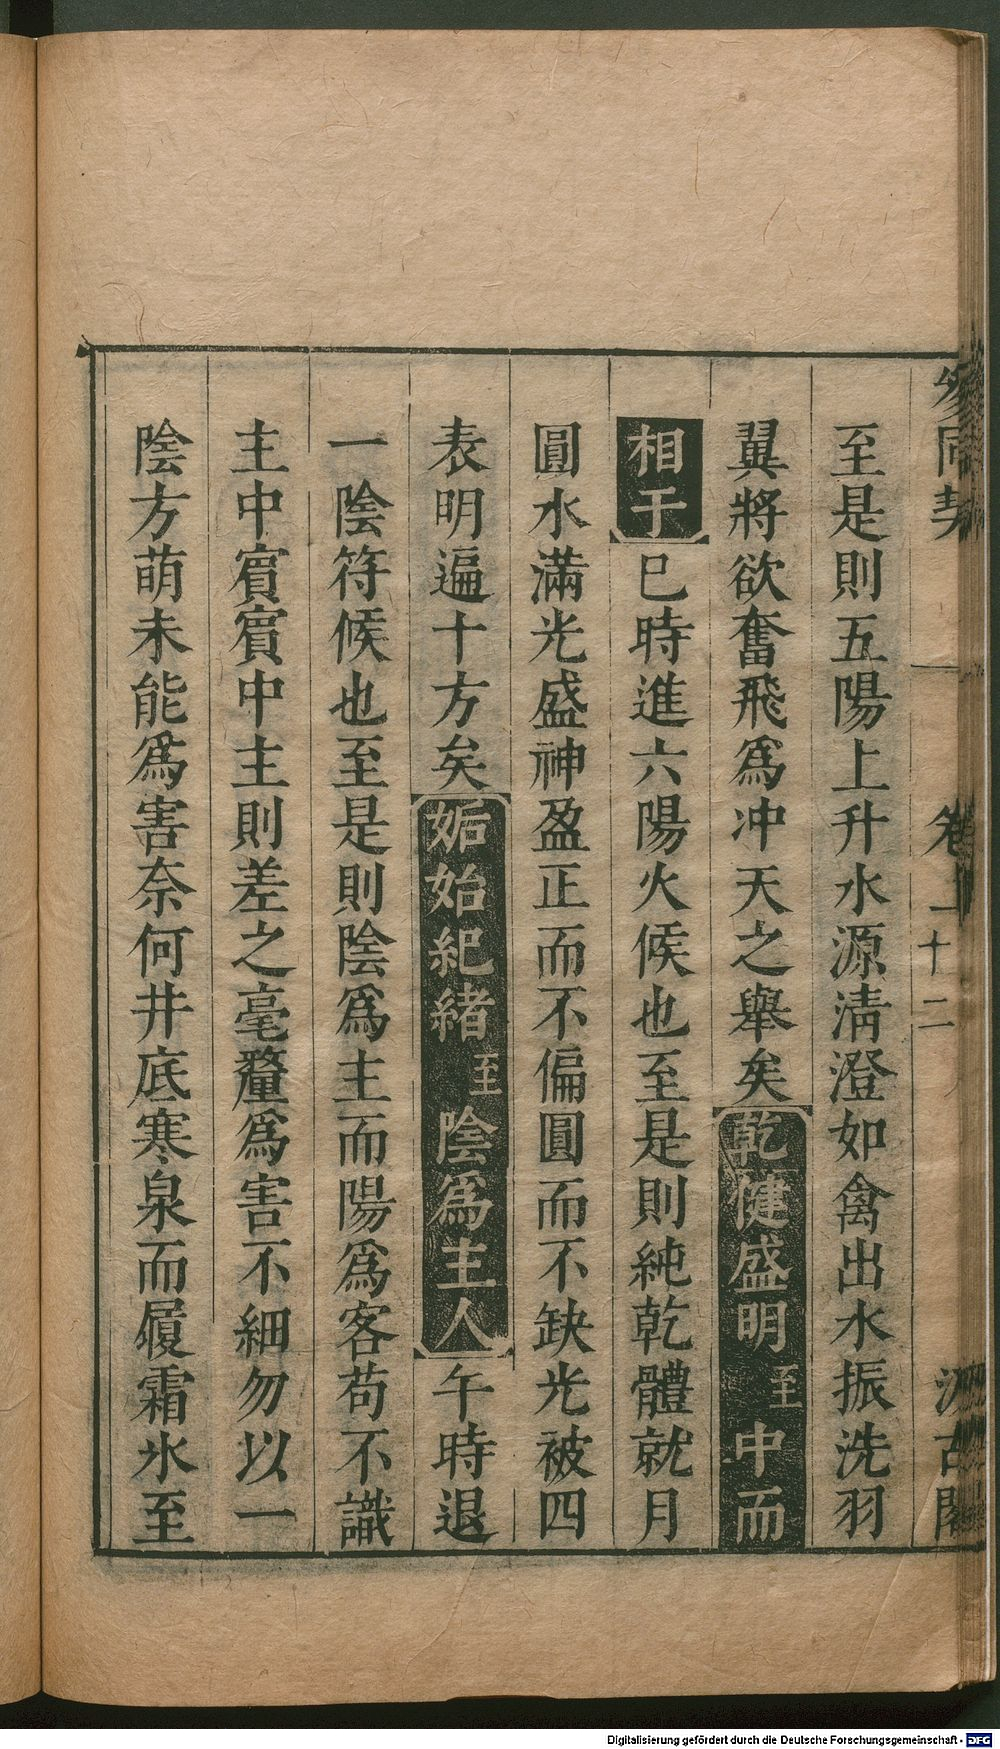 參同契 卷二十二 汲古閣
至是則五陽上升水源淸澄如禽出水振洗羽
翼將欲奮飛爲冲天之舉矣乾健盛明至中而
相于巳時進六陽火候也至是則純乾體就月
圓水滿光盛神盈正而不偏圓而不缺光被四
表明遍十方矣姤始紀緒至陰爲主人午時退
一陰符候也至是則陰爲主而陽爲客苟不識
主中賔賔中主則差之毫釐爲害不細勿以一
陰方萌未能爲害奈何井底寒泉而履霜氷至
Digitalisierung gefördert durch die Deutsche Forschungsgemeinschaft - DFG